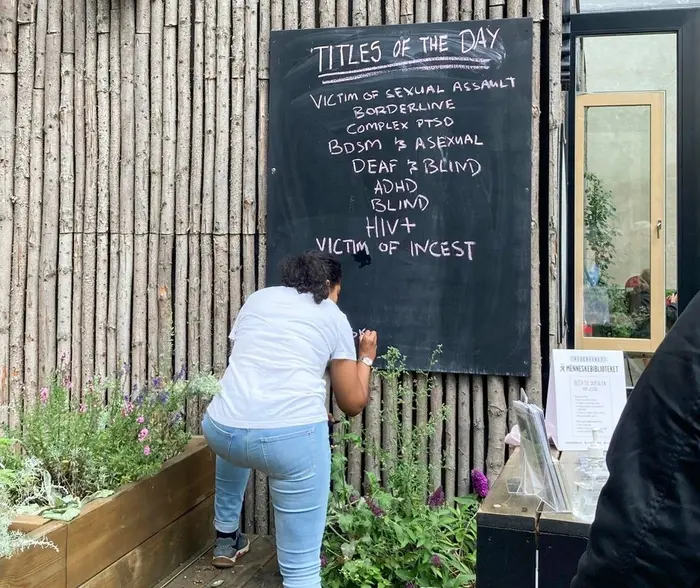 TITLES OF THE DAY
VICTIM OF SEXUAL ASSAULT
BORDERLINE
COMPLEX PTSD
BDSM & ASEXUAL
DEAF & BLIND
ADHD
BLIND
HIV+
VICTIM OF INCEST
MENNESKEBIBLIOTEKET